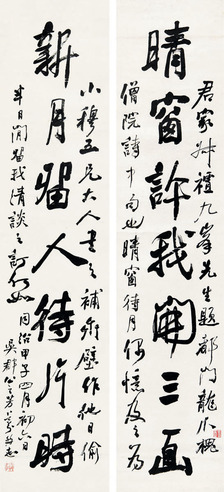 晴窗許我開三面
君家叔禮九峯先生題都門龍樹
僧院詩中句也晴窗待月偶憶及之為
新月留人待片時
小穆五兄大人書之補齋壁作他日偷
半日閒留我清談之訂何如
同治甲子四月初六日
吳郡